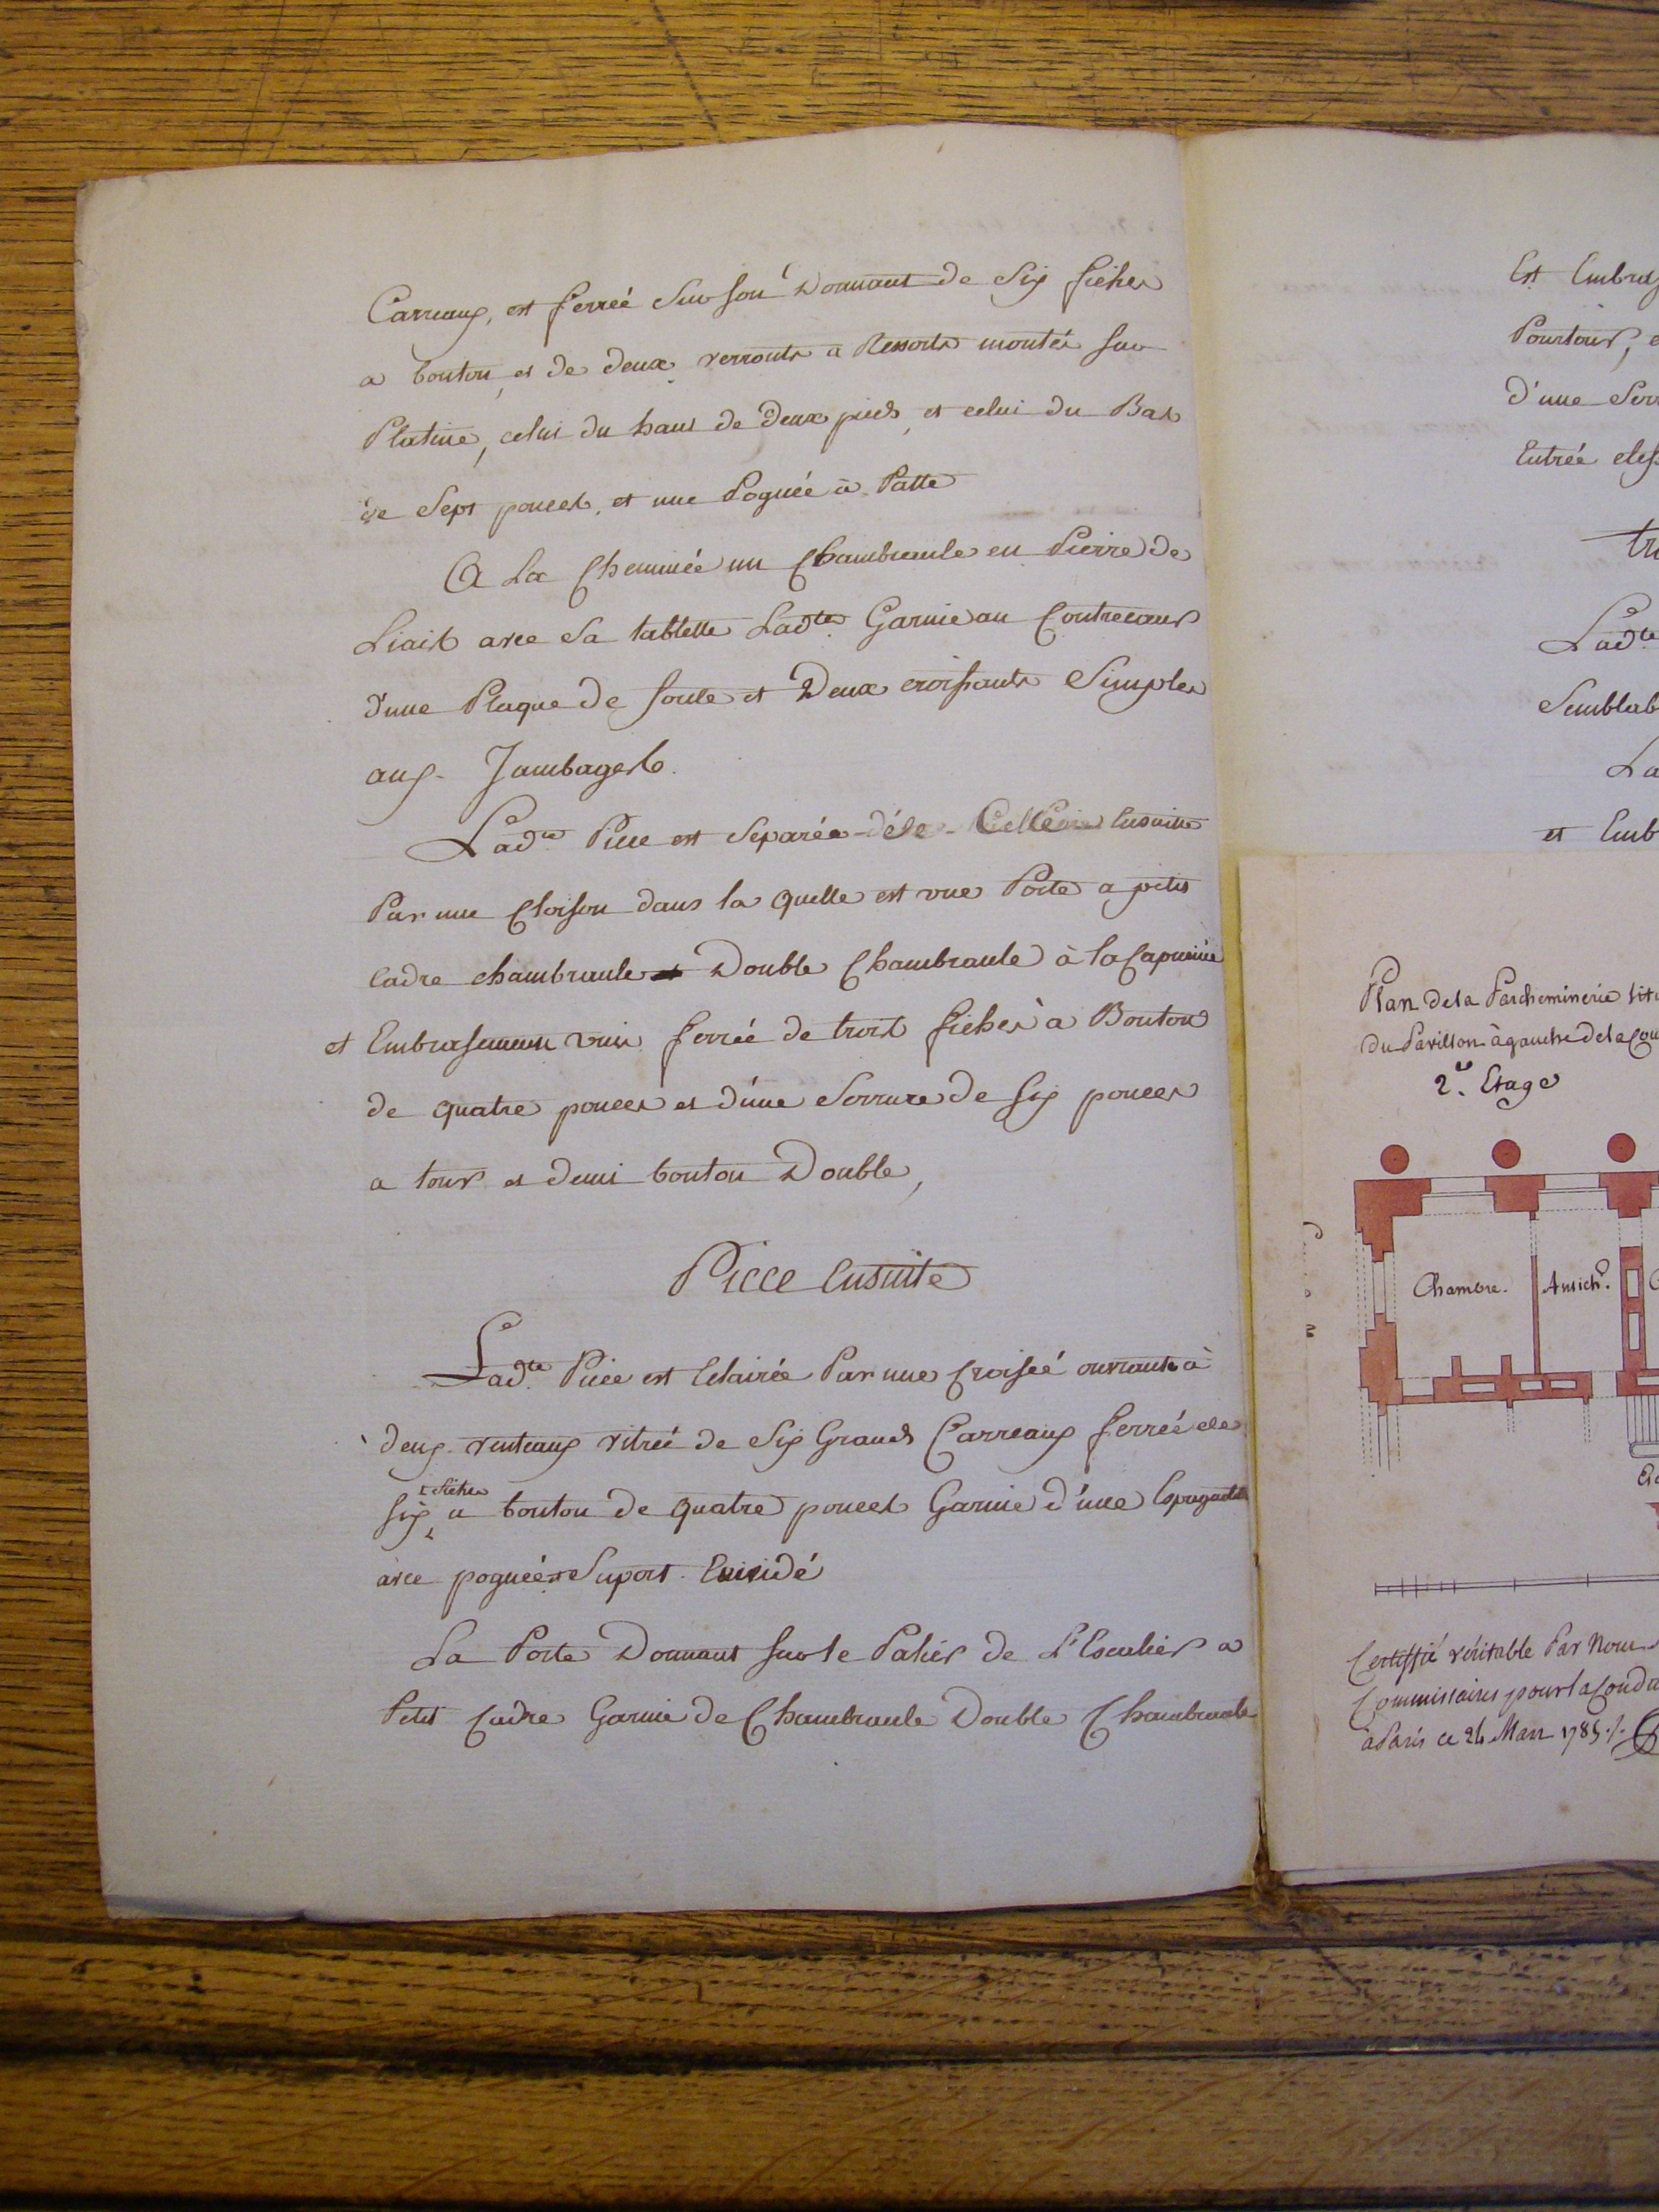 Carreaux, est ferreé Sur son Dormant de Six fiches
a bouton, et de deux verrouts a Ressorts montés sur
Platine, celui du haut de Deux pieds, et celui du Bas
de Sept pouces, et une Pognée à Patte
A La Cheminée un Chambranle en Pierre de
Liais avec Sa tablette Ladte. Garnie au Contrecœur
d'une Plaque de fonte et Deux croissants Simples
aux Jambages.
Ladte. Piece est Separée de Celle Ensuite
Par une Cloison dans la quelle est une Porte a petit
Cadre chambranle Double Chambranle à la Capucine
et Embrasement unie ferrée de trois fiches à Bouton
de quatre pouces et d'une Serrure de Six pouces
a tour et demi bouton Double,
Piece Ensuite
Ladte. Piece est Eclairée Par une Croiseé ouvrante à
deux venteaux vitreé de Six Grands Carreaux ferrée de
Six fiches a bouton de quatre pouces Garnie d'une Espagnolette
avec pognée et Suport Evuidé
La Porte Donnant sur le Palier de L'Escalier a
Petit Cadre Garnie de Chambranle Double Chambranle
Est Embras
Pourtour, e
d'une Serr
Entrée
Ladte
Semblab
La
et Emb
Plan de la Parcheminerie situ
du Pavillon à gauche de la Cou
2e. Etage
Chambre.
Antich.
Certiffié véritable Par Nous
Commissaires pour la Condu
à Paris ce 24 Mars 1785 ./.